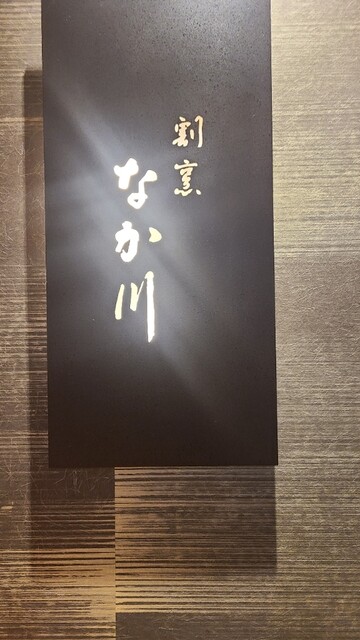 割烹
なか川